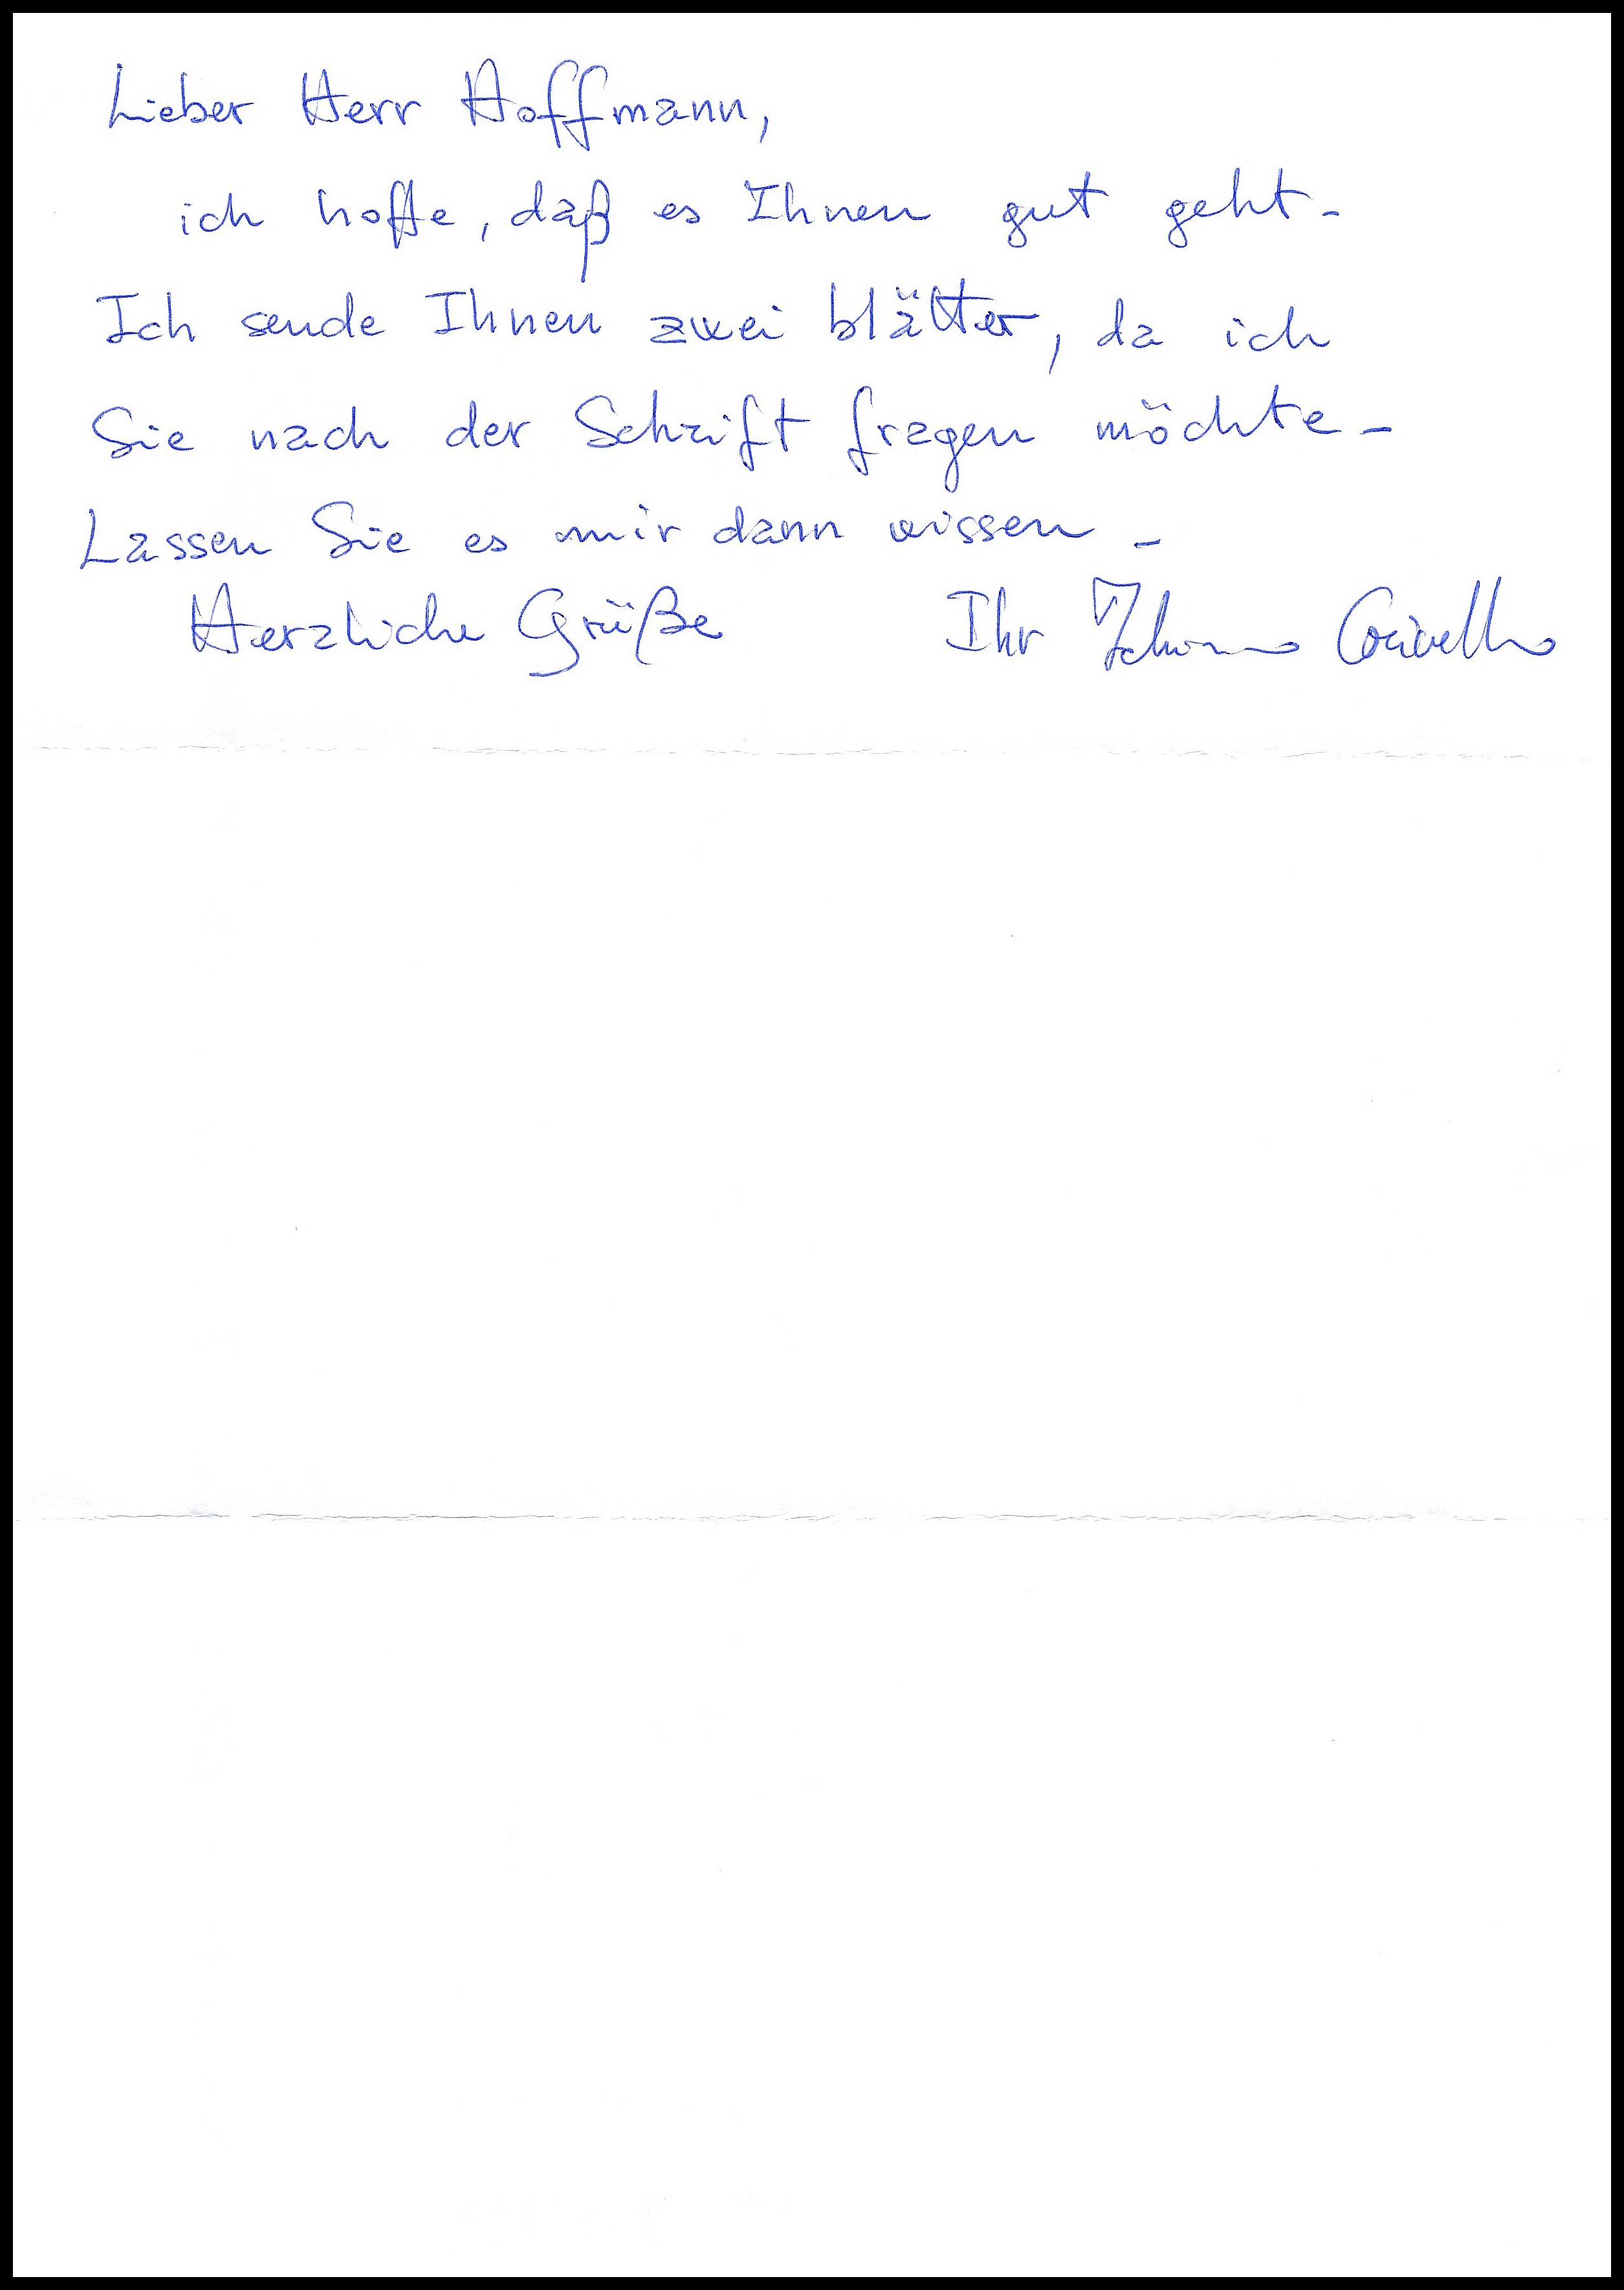 Lieber Herr Hoffmann,
ich hoffe, daß es Ihnen gut geht-
Ich sende Ihnen zwei blätter, da ich
Sie nach der Schrift fragen möchte-
Lassen Sie es mir dann wissen -
Herzliche Grüße Ihr